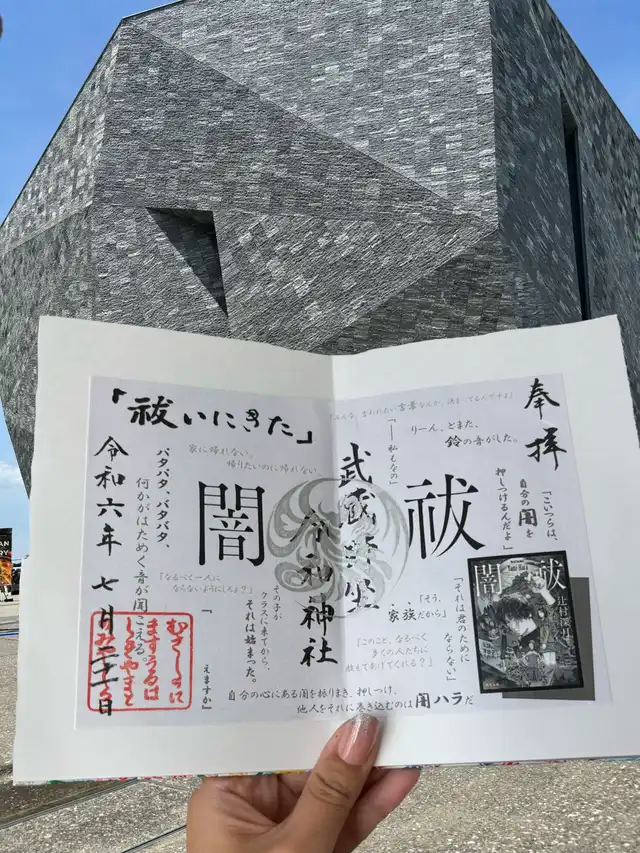 奉拝
「みんな、言われたい言葉なんか、決まってるんですよ」
りーん、とまた、
鈴の音がした。
「こいつらは、
自分の闇を
押しつけるんだよ」
「──私もなの」
祓
闇
武蔵野坐
令和神社
「そう、
家族だから」
「それは君のために
ならない」
「このこと、なるべく
多くの人たちに
教えてあげてくれる？」
闇祓
辻村深月
「祓いにきた」
家に帰れない。
帰りたいのに帰れない。
バタバタ、バタバタ、
何かがはためく音が聞こえる。
「なるべく一人に
ならないようにしろよ？」
その子が
クラスに来てから、
それは始まった。
えますか」
自分の心にある闇を振りまき、押しつけ、
他人をそれに巻き込むのは闇ハラだ
令和六年七月二十一日
むさしのに
ますうるは
しきやまと